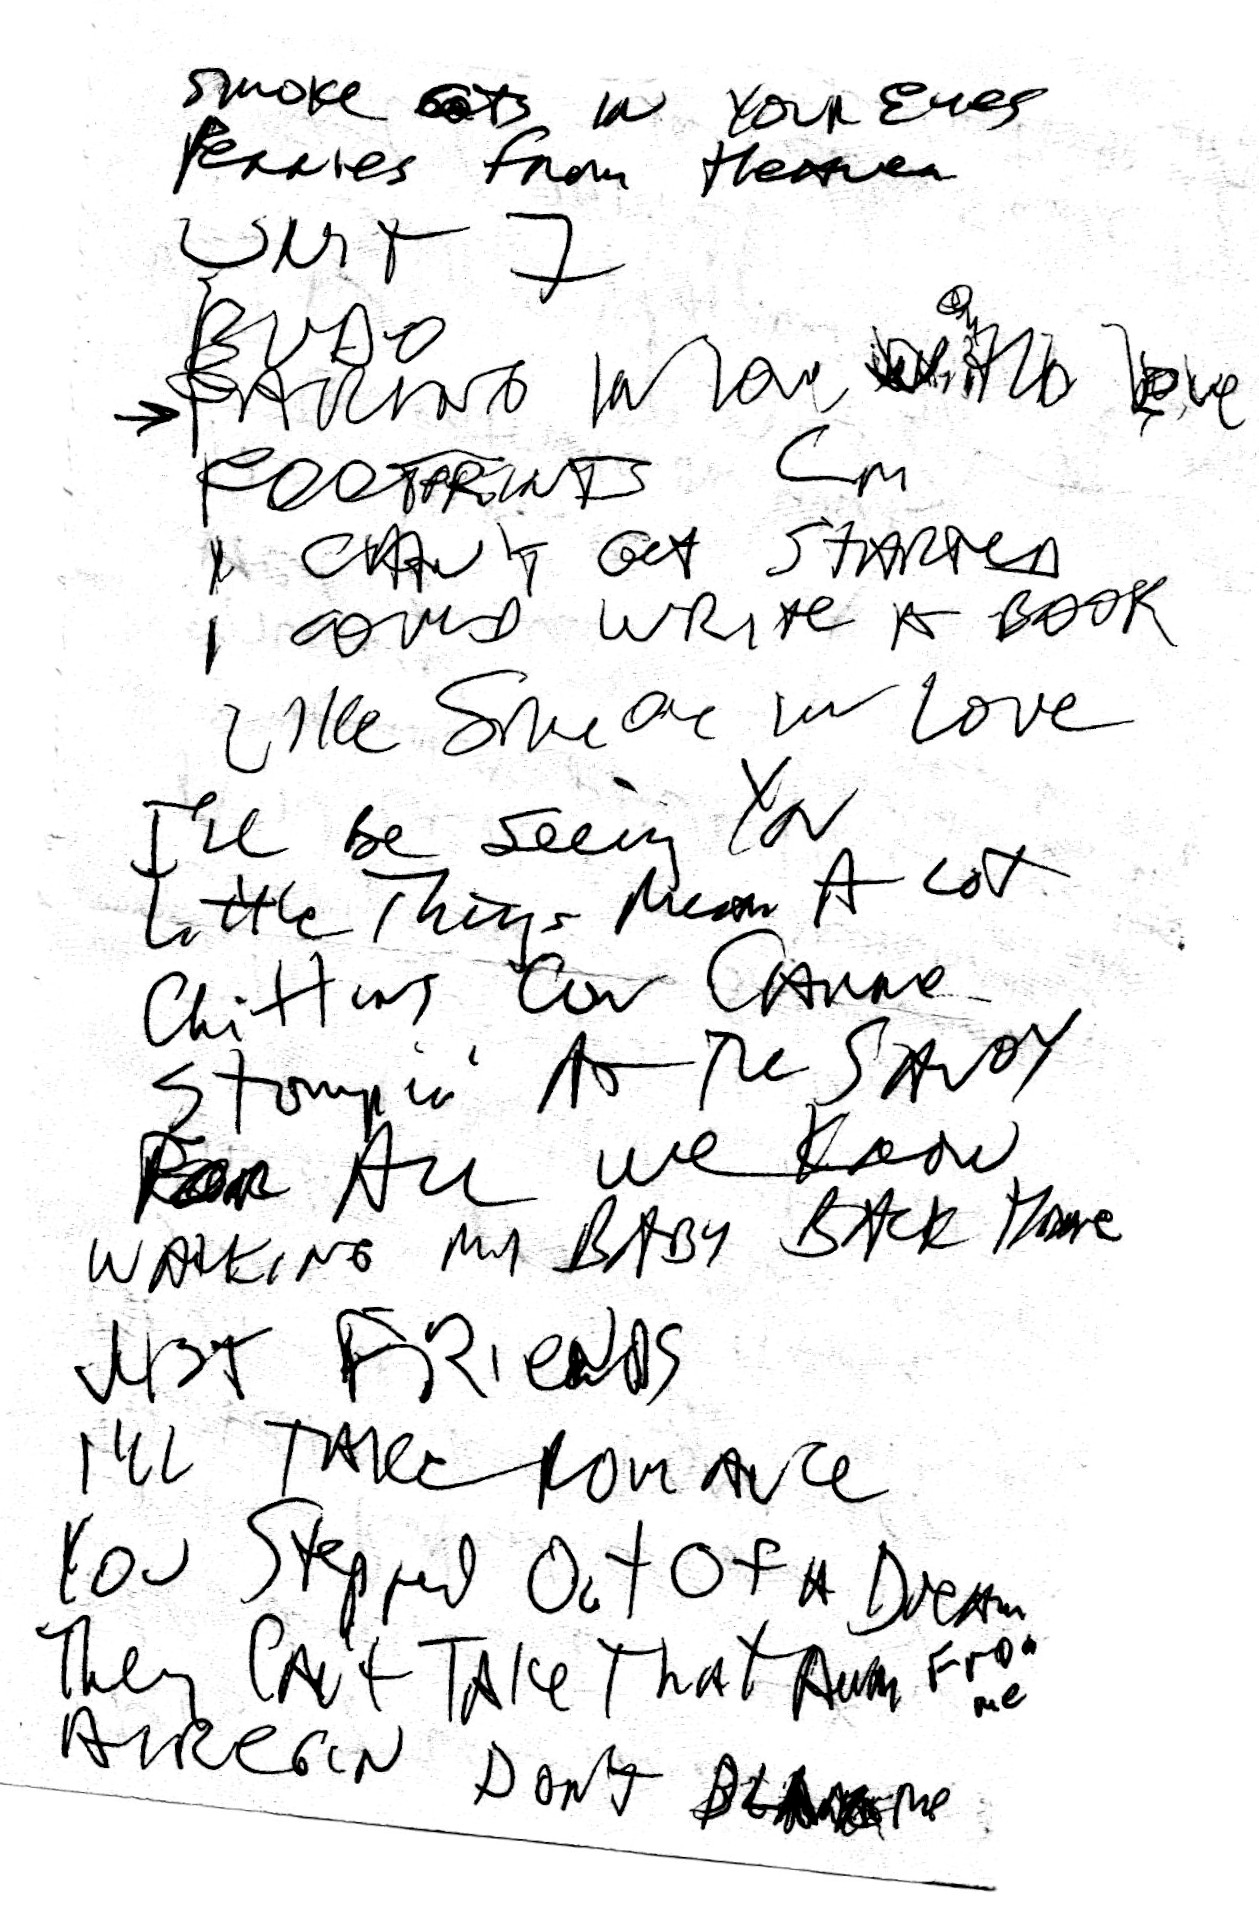 Smoke Gets in Your Eyes
Pennies from Heaven
Unit 7
BUDO
→ FALLING in love with love
FOOTPRINTS Cm
I CAN'T GET STARTED
I COULD WRITE A BOOK
Like Someone in Love
I'll Be Seeing You
Little Things Mean A Lot
Chitlins Con Carne
Stompin' At The SAVOY
For All we Know
WALKING MY BABY BACK Home
JUST FRIENDS
I'll TAKE ROMANCE
You Stepped Out Of A Dream
They Can't TAKE That Away From me
AIREGIN Don't BLAME me